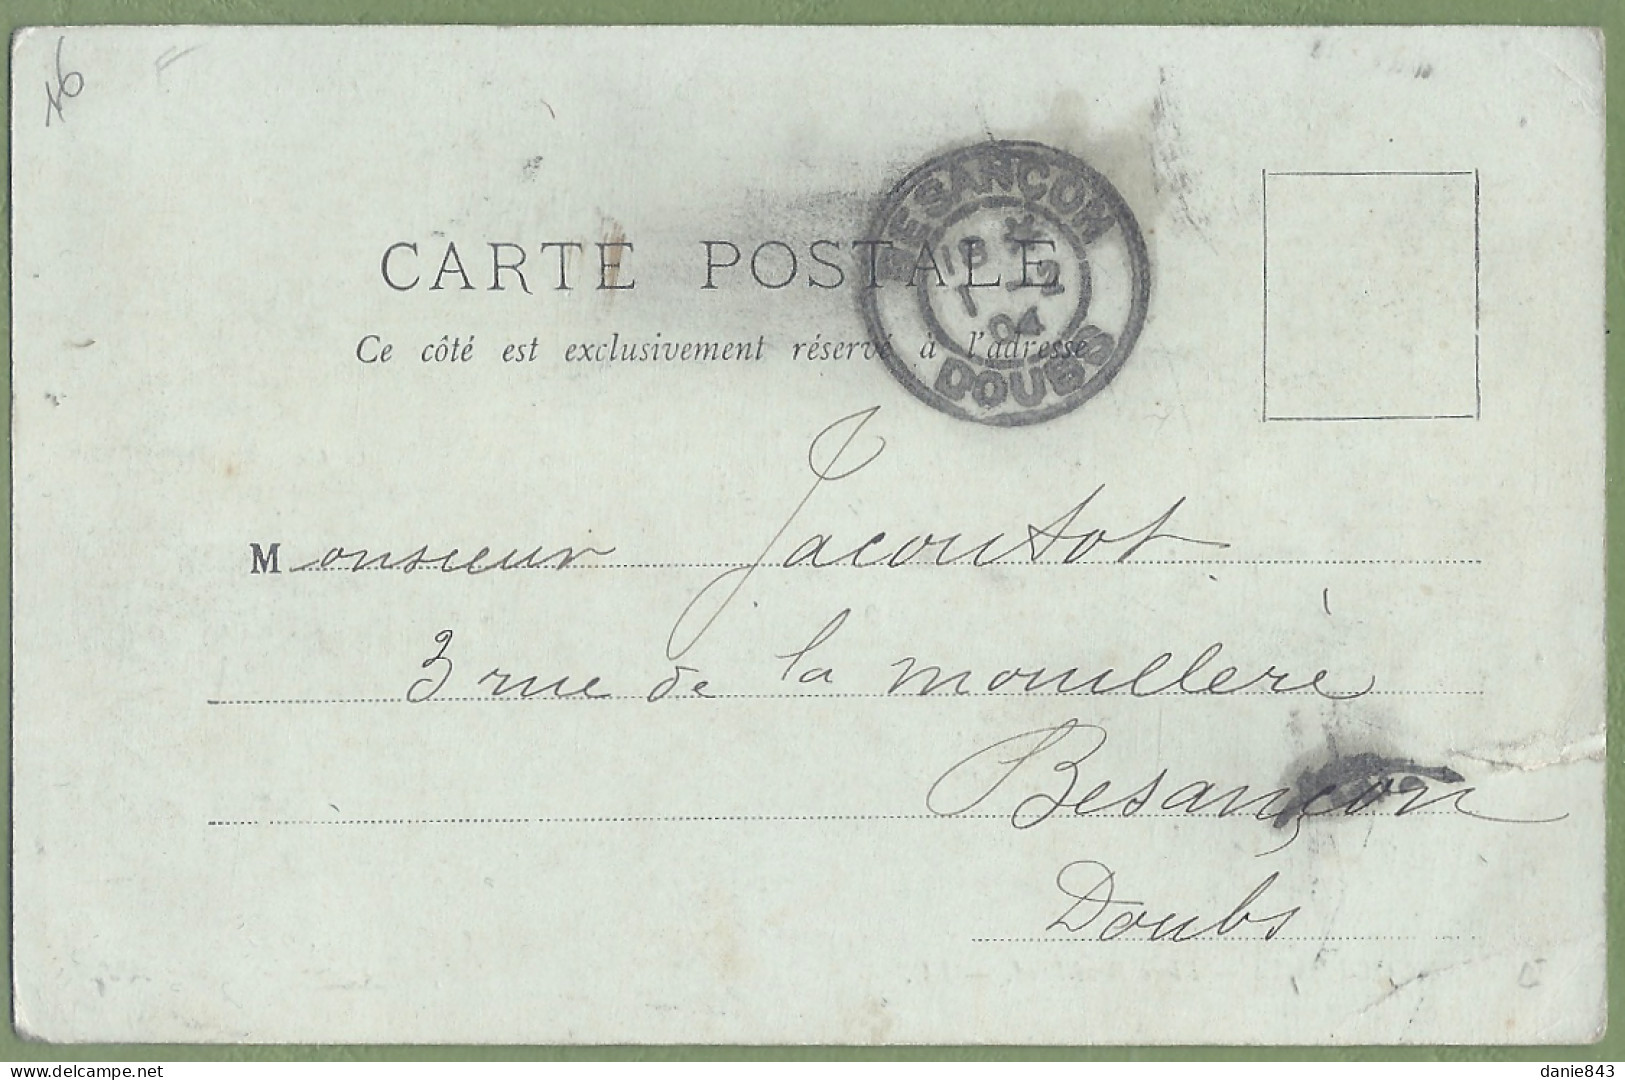 46
BESANÇON
18 *
1 -2
04
DOUBS
CARTE POSTALE
Ce côté est exclusivement réservé à l'adresse
Monsieur Jacoutot
3 rue de la mouillerè
Besançon
Doubs
www.delcampe.net
danie843